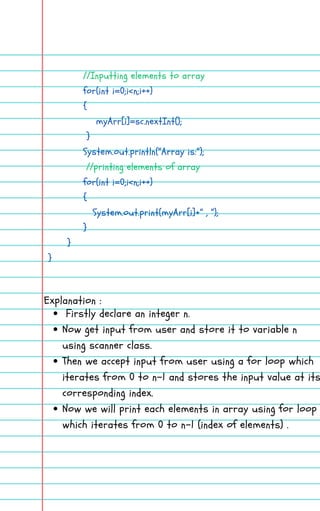 //Inputting elements to array
for(int i=0;i<n;i++)
{
myArr[i]=sc.nextInt();
}
System.out.println("Array is:");
//printing elements of array
for(int i=0;i<n;i++)
{
System.out.print(myArr[i]+" , ");
}
}
}
Explanation :
• Firstly declare an integer n.
• Now get input from user and store it to variable n
using scanner class.
• Then we accept input from user using a for loop which
iterates from 0 to n-1 and stores the input value at its
corresponding index.
• Now we will print each elements in array using for loop
which iterates from 0 to n-1 (index of elements) .